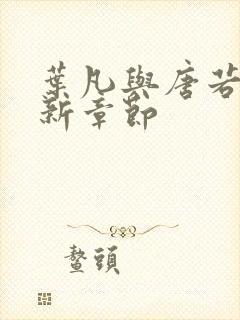 葉凡與唐若
新章節
鰲頭